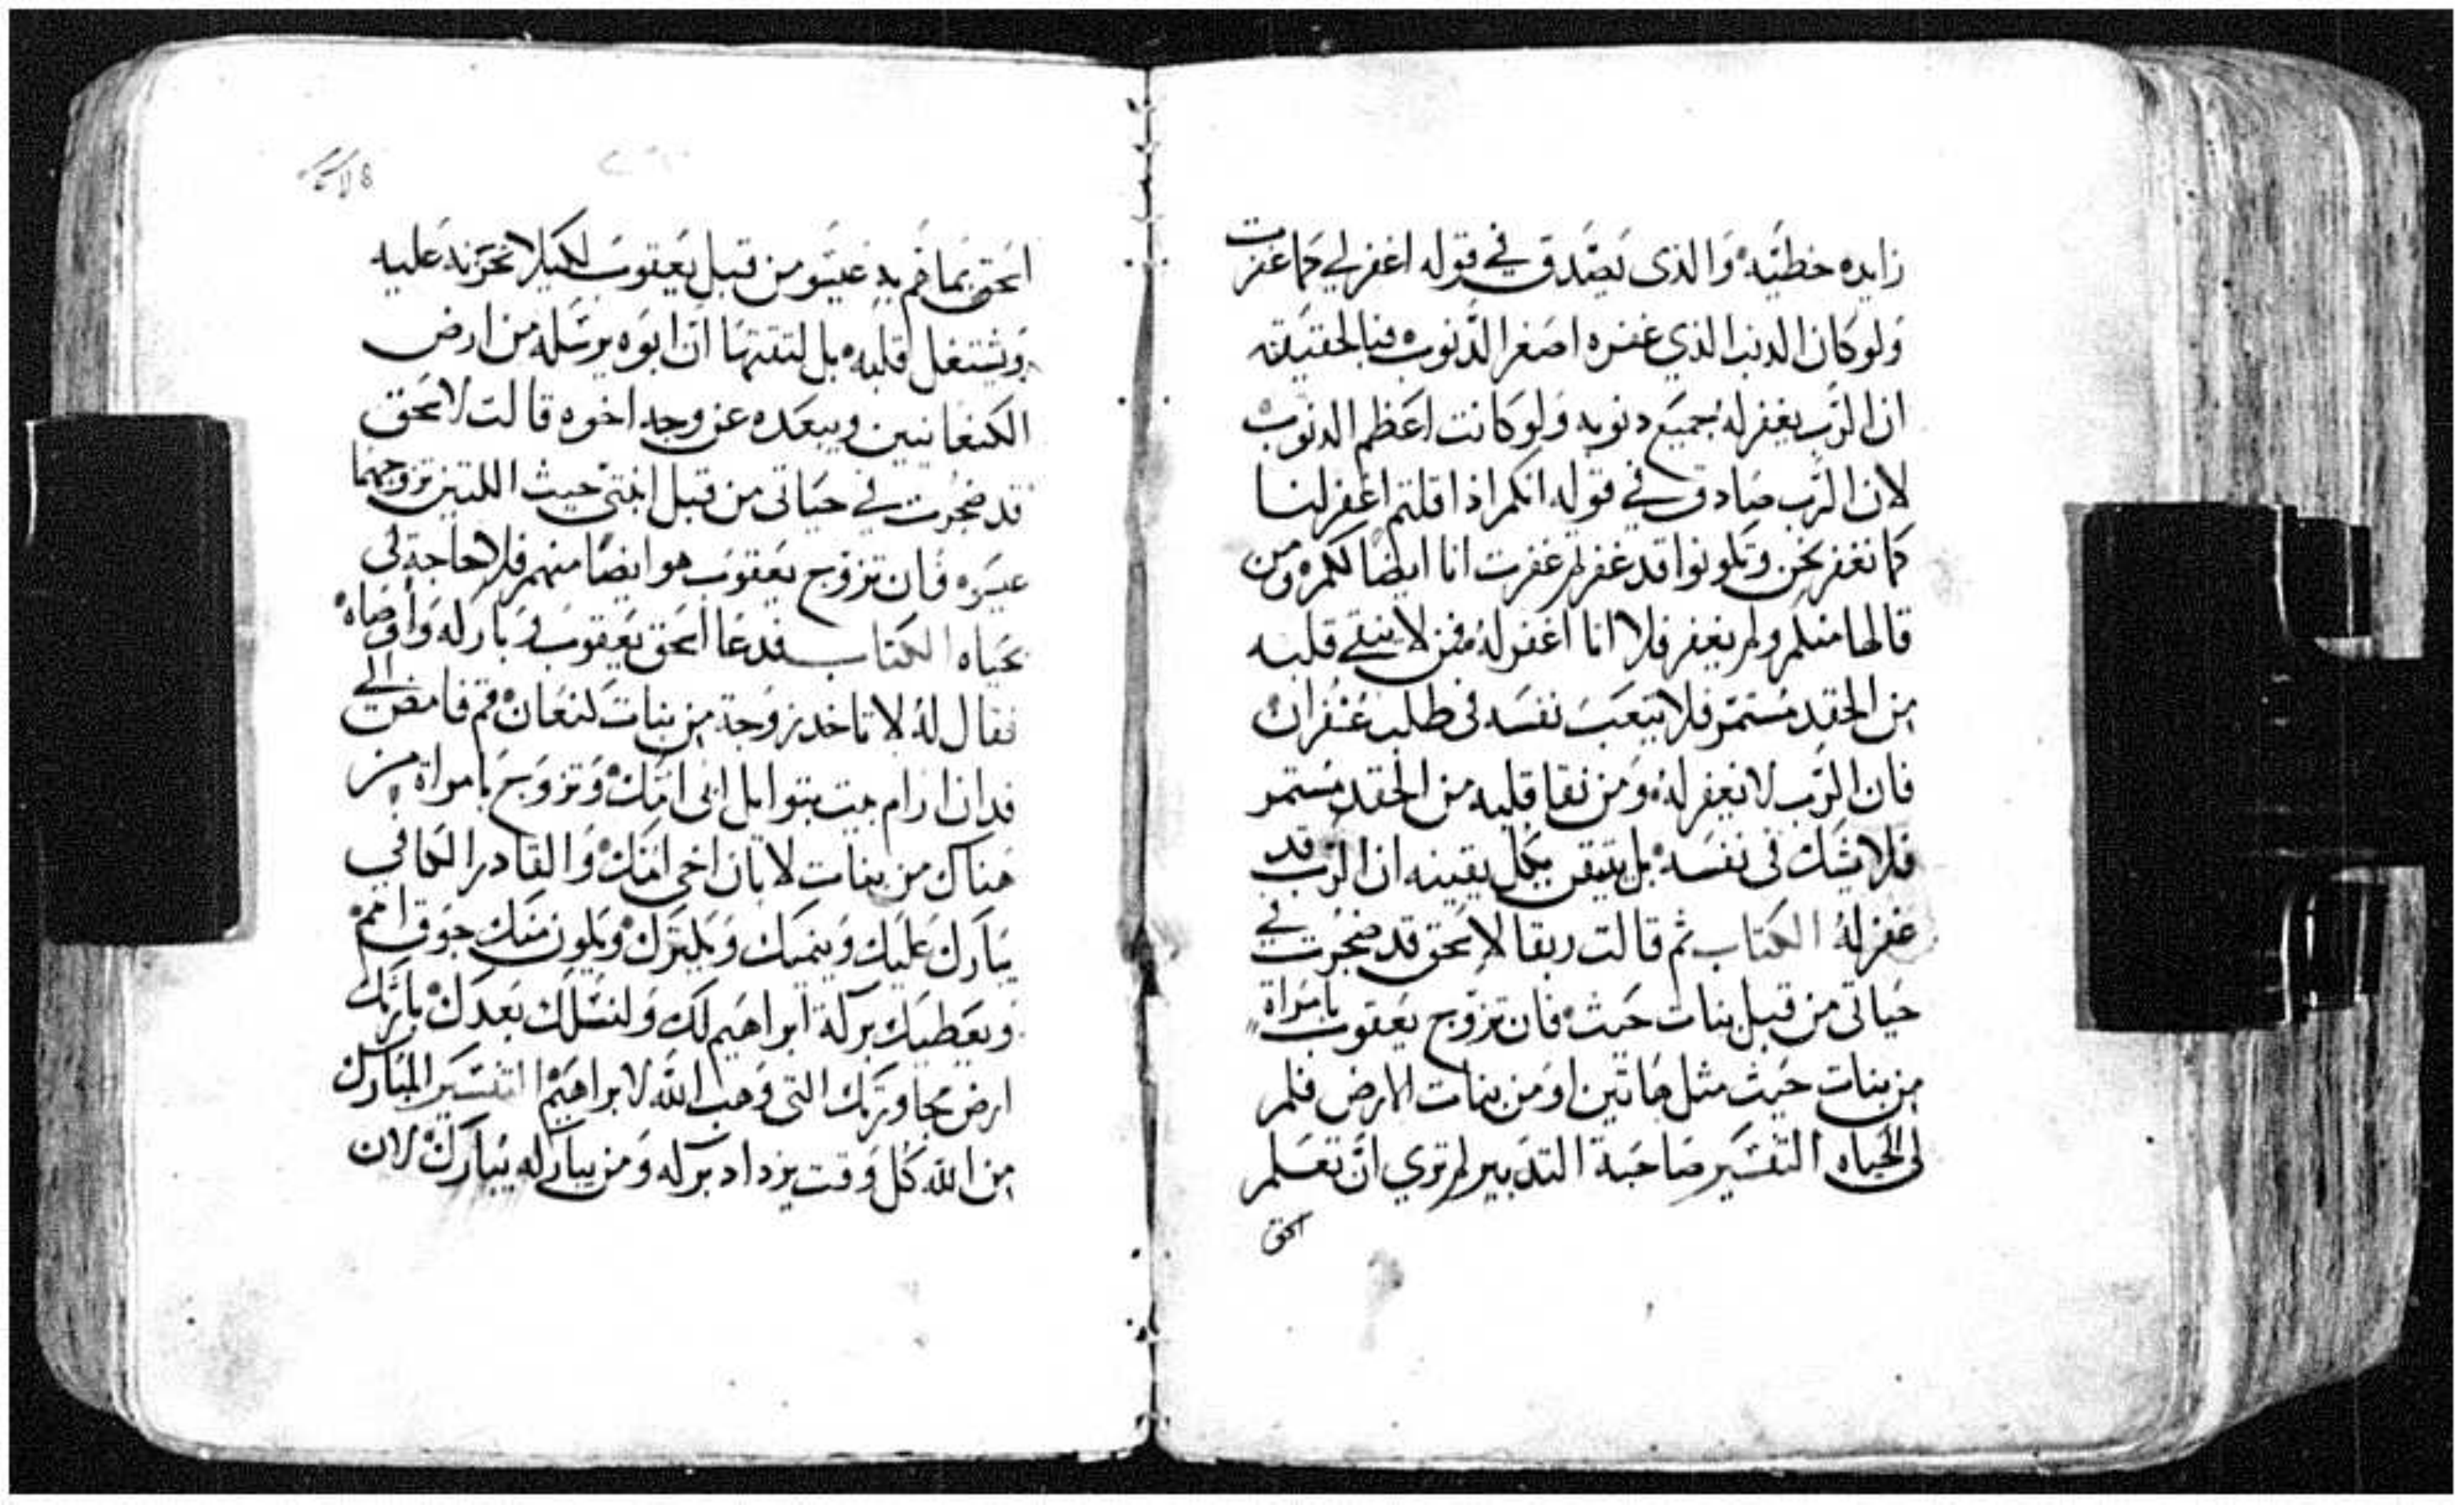 زايده خطيّه والذى يصّدق في قوله اغفر لي كما غفرت
ولو كان الدنب الذي غفره اصغر الدّنوب فبالحقيقه
ان الرّب يغفر له جميع دنوبه ولو كانت اعظم الدنوب
لان الرّب صادق في قوله انكم اذا قلتم اغفر لنا
كما نغفر نحن وتكونوا قد غفرتم غفرت انا ايضا لكم ومن
قالها منكم ولم يغفر فلا انا اغفر له فمن لا ينقي قلبه
من الحقد مستمر فلا يتعب نفسه فى طلب غفران
فان الرّب لا يغفر له ومن نقا قلبه من الحقد مستمر
فلا يشك فى نفسه بل يتيقن بكل يقينه ان الرّب قد
غفر له الكتاب ثم قالت ربقا لاسحق قد ضجرت في
حياتى من قبل بنات حيث فان تزوج يعقوب بامراة
من بنات حيث مثل هاتين او من بنات الارض فلم
لى الحياه التفسير صاحبة التدبير لم تري ان تعلم
اسحق
اسحق بما هم به عيسو من قبل يعقوب لكيلا تحزنه عليه
ويشتغل قلبه بل لتقتها ان ابوه يرسله من ارض
الكنعانيين ويبعده عن وجه اخوه قالت لاسحق
قد ضجرت في حياتى من قبل ابنتى حيث اللتين تزوجهما
عيسو فان تزوج يعقوب هو ايضا منهم فلا حاجة لى
بحياه الكتاب فدعا اسحق يعقوب وبارله واوصاه
فقال له لا تاخد زوجة من بنات كنعان قم فامض الي
فدان ارام بيت بتوايل ابى امك وتزوج بامراة من
هناك من بنات لابان اخى امك والقادر الكافي
يبارك عليك وينميك ويكترك ويكون منك جوق امم
ويعطيك بركة ابراهيم لك ولنسلك بعدك بارثك
ارض مجاورتك التى وهب الله لابراهيم التفسير المبارك
من الله كل وقت يزداد بركه ومن يباركه يبارك لان